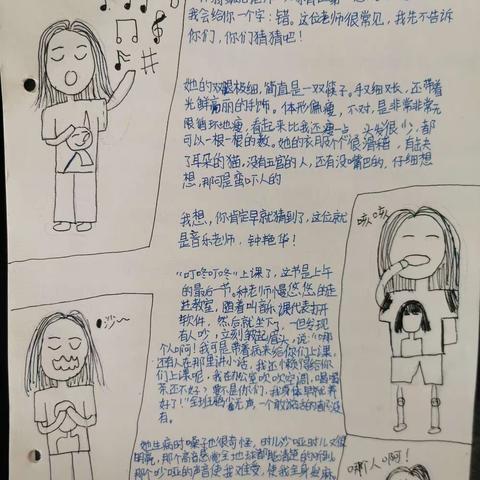 我会给你一个字：错。这位老师很常见，我先不告诉
你们，你们猜猜吧！
她的双腿极细，简直是一双筷子。手又细又长，还带着
光鲜亮丽的手饰。体形偏瘦，不对，是非常非常无
限循环地瘦，看起来比我还瘦一点，头发很少，都
可以一根一根的数。她的衣服个个很滑稽，有缺失
了耳朵的猫，没有五官的人，还有没嘴巴的，仔细想
想，那可是蛮吓人的
我想，你肯定早就猜到了，这位就
是音乐老师，钟艳华！
咳咳
“叮咚叮咚”上课了，这节是上午
的最后一节。种老师慢悠悠的走
进教室，随着叫音乐课代表打开
软件，然后就坐下，一但发现
有人吵，立刻皱起眉头，说：“哪
个人啊！我可是带着病来给你们上课，
还有人在那里讲小话，我还不赖得给你
们上课呢，我在办公室吹吹空调，喝喝
茶还不好？要不是你们，我身体早就养
好了！”全班鸦雀无声，一个敢说话的都没
有。
沙~
她生病时嗓子也很奇怪，时儿沙哑时儿又很
明亮，那个高音感觉全地球都能清楚的听到
那个沙哑的声音使我难受，使我全身发麻
哪个人啊！